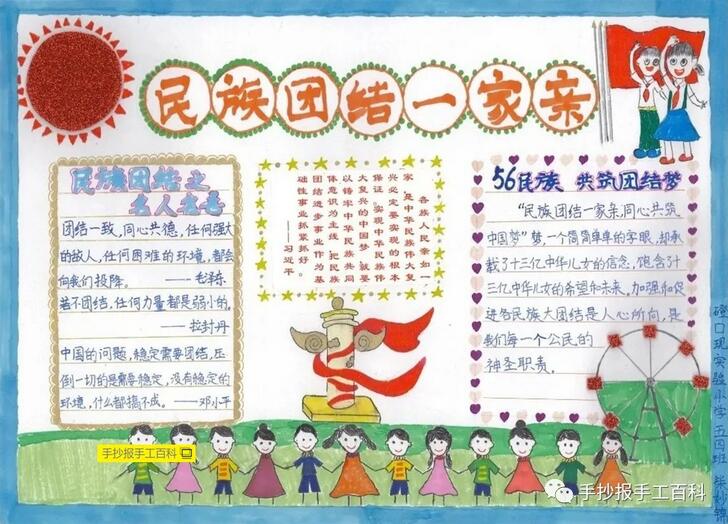 民族团结一家亲
民族团结之
名人名言
团结一致,同心共德,任何强大
的敌人,任何困难的环境,都会
向我们投降。 ——毛泽东
若不团结,任何力量都是弱小的。
——拉封丹
中国的问题,稳定需要团结,压
倒一切的是需要稳定,没有稳定的
环境,什么都搞不成。——邓小平
各族人民亲如一
家,是中华民族伟大复
兴必定要实现的根本
保证。实现中华民族伟
大复兴的中国梦,就要
以铸牢中华民族共同
体意识为主线,把民族
团结进步事业作为基
础性事业抓紧抓好。
——习近平
56民族 共筑团结梦
“民族团结一家亲,同心共筑
中国梦”梦,一个简简单单的字眼,却承
载了十三亿中华儿女的信念,饱含了十
三亿中华儿女的希望和未来。加强和促
进各民族大团结是人心所向,是
我们每一个公民的
神圣职责。
手抄报手工百科
手抄报手工百科